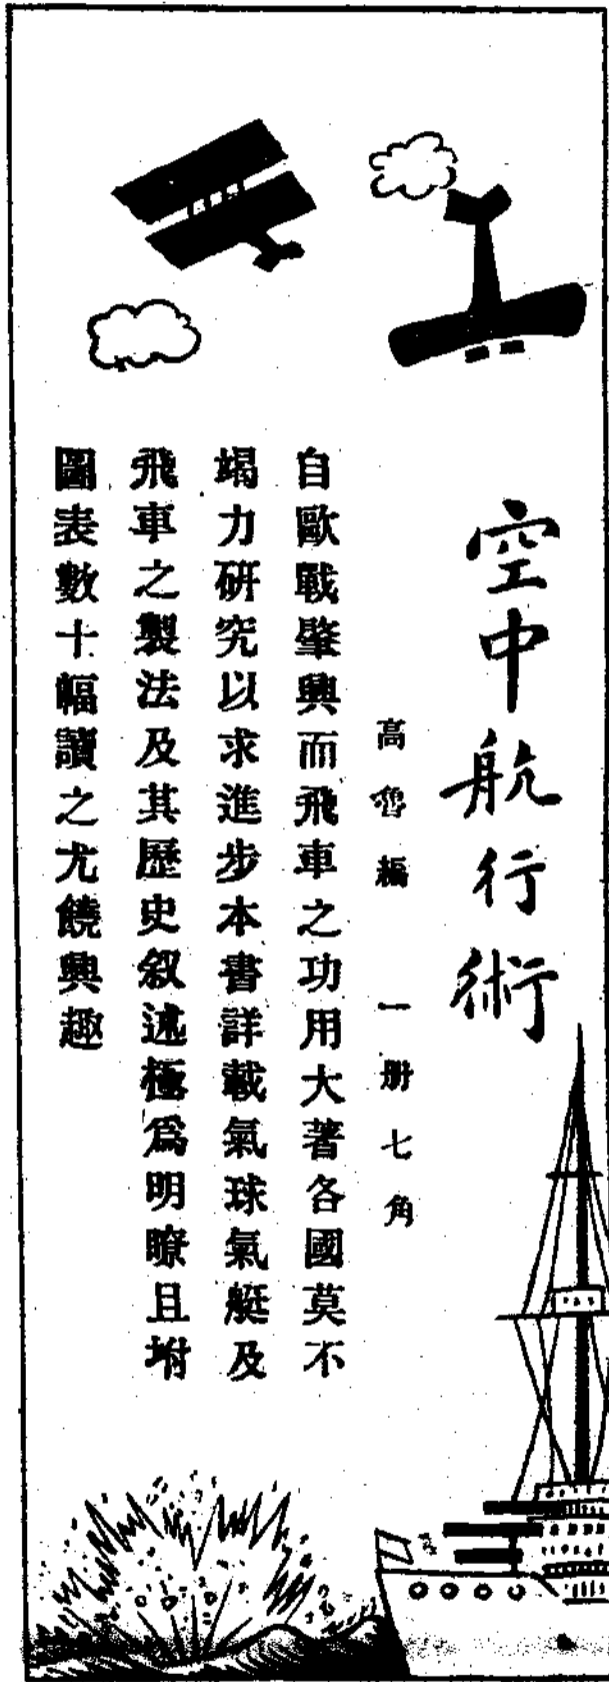 空中航行術
高魯編 一册七角
自歐戰肇興而飛車之功用大著各國莫不
竭力研究以求進步本書詳載氣球氣艇及
飛車之製法及其歷史叙述極爲明瞭且坿
圖表數十幅讀之尤饒興趣